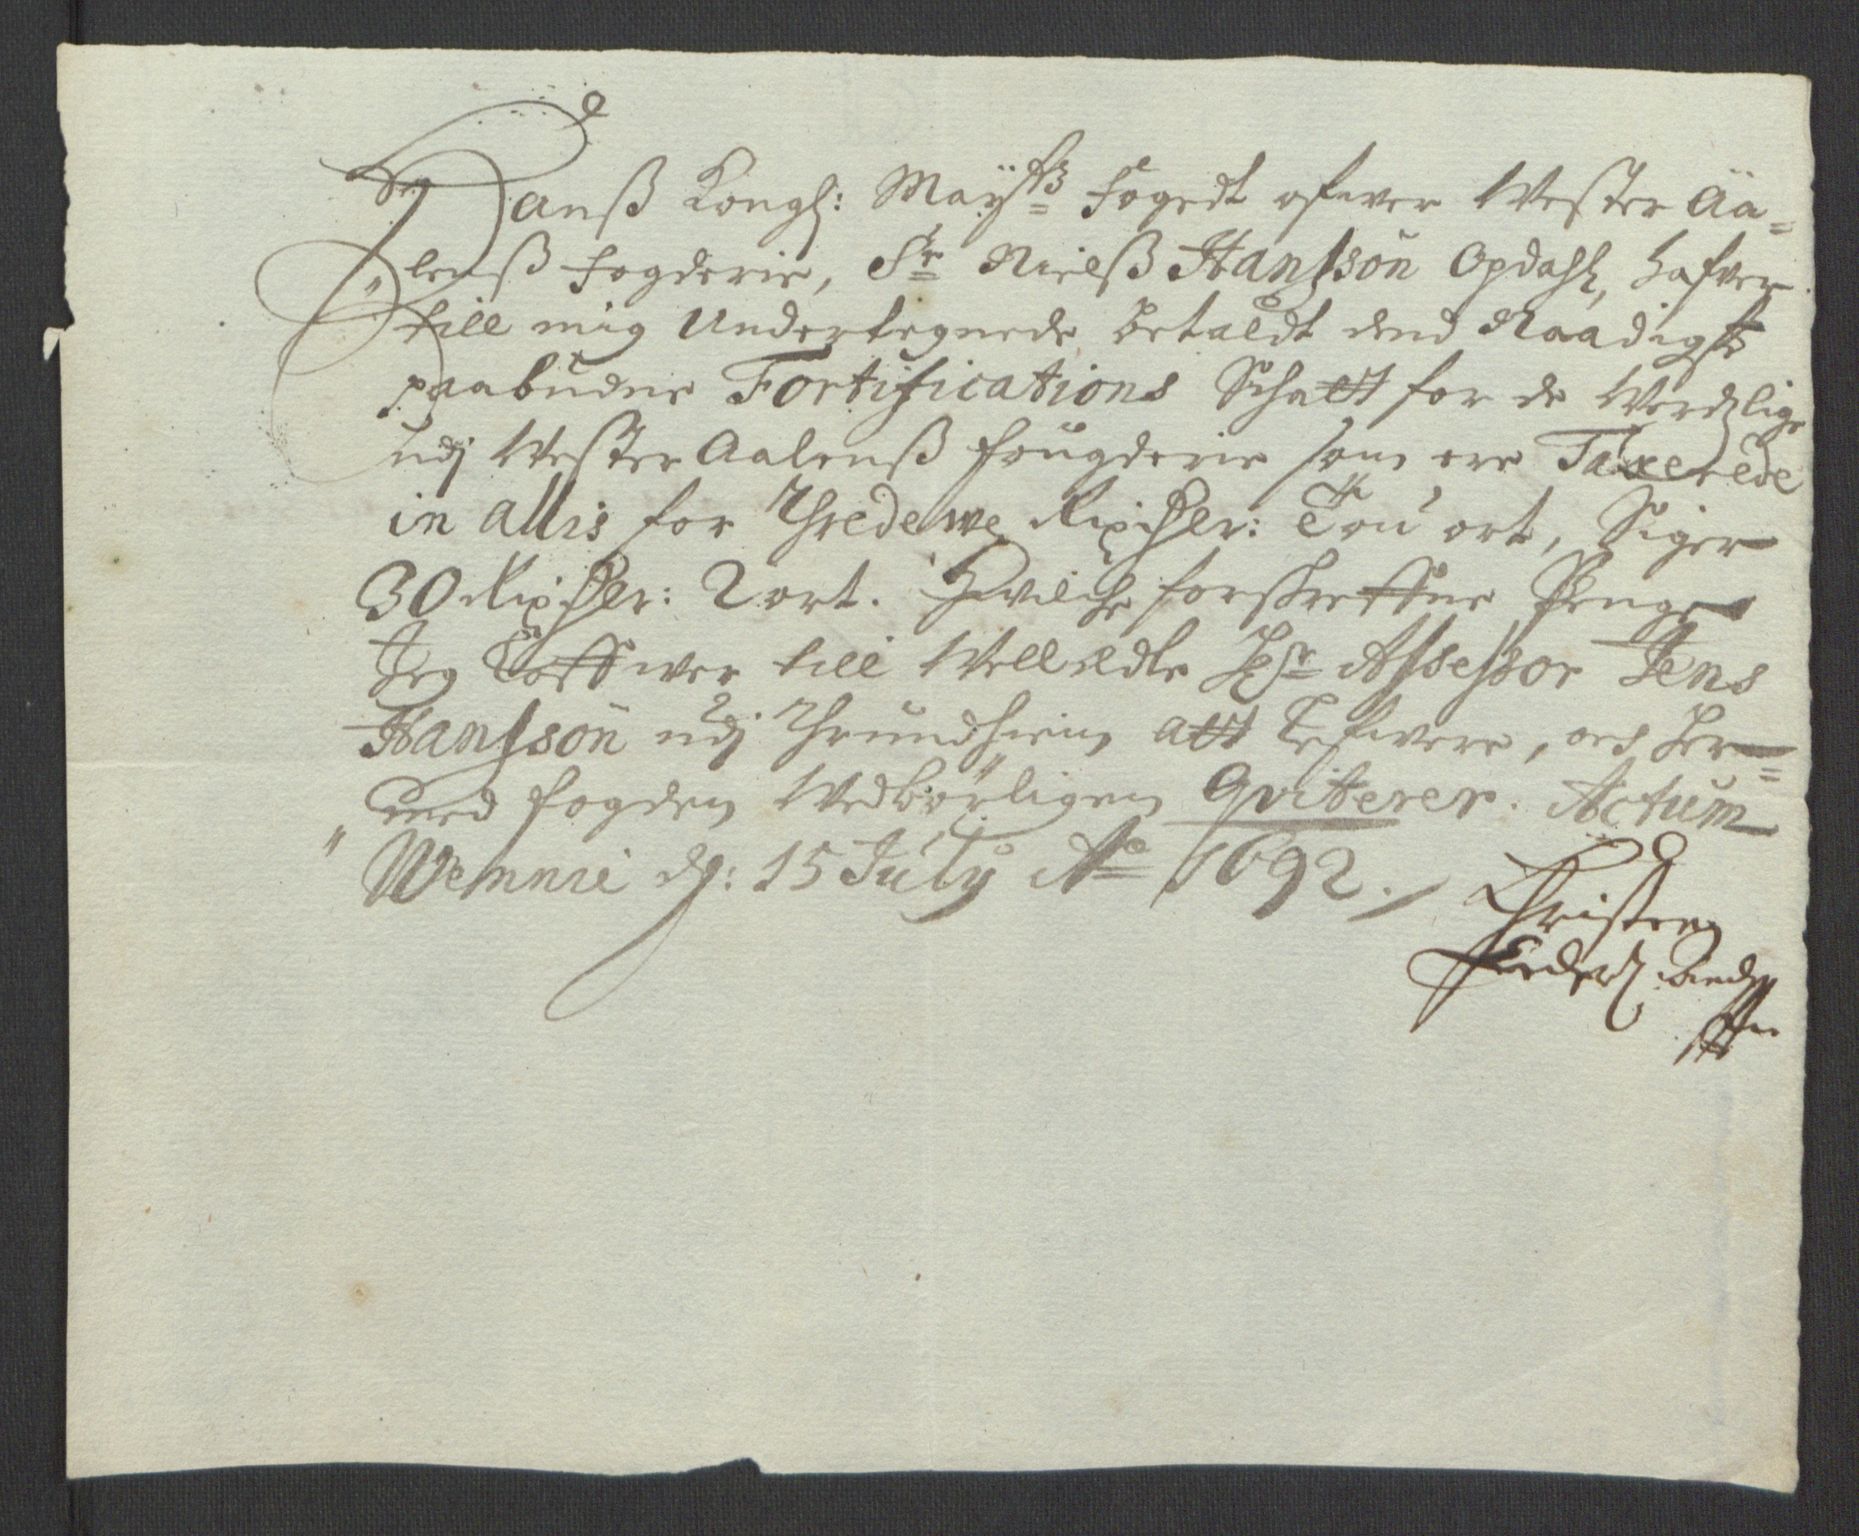 Hanß Kongl: Mayttß Fogedt ofwer Wester Aa=
lenß Fogderie, Sr Nielß Hanßsön Opdahl, hafver
till mig Undertegnede betaldt dend Naadigst
paabudne Fortifications Schatt for de Werdzlige
udj Wester Aalenß Fougderie som ere Taxerede
in allis for Thredewe Rixdlr: Tou ort, Siger
30 Rixdlr: 2 ort. Hvilche forskrefne Penge
Jeg till Welædle Hr Assessor Jens
Hanßsön udj Thrundhiem att lefwere, oc her=
med fogden Wedbörligen Qviterer. Actum
Wemnie dj: 15 July Ao 1692.
Christen